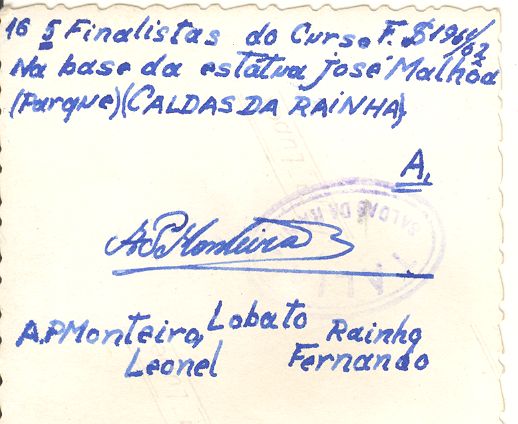 16 5 Finalistas do Curso F. S 1961/62
Na base da estátua José Malhôa
(Parque) (CALDAS DA RAINHA).
A.
A P Monteiro
SALÕES DA
A.P Monteiro, Lobato Rainho
Leonel Fernando